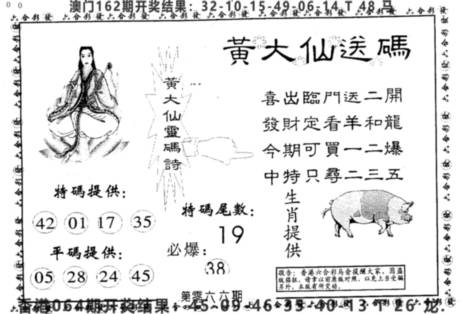 澳门162期开奖结果：32-10-15-49-06-14 T 48 马
黃大仙送碼
黃大仙靈碼詩
喜出臨門送二開
發財定看羊和龍
今期可買一二爆
中特只尋二三五
特碼提供：
42 01 17 35
平碼提供：
05 28 24 45
特碼尾數：
19
必爆：
38
生肖提供
第零六六期
香港064期开奖结果：45-09-46-33-40-13 T 26 龙